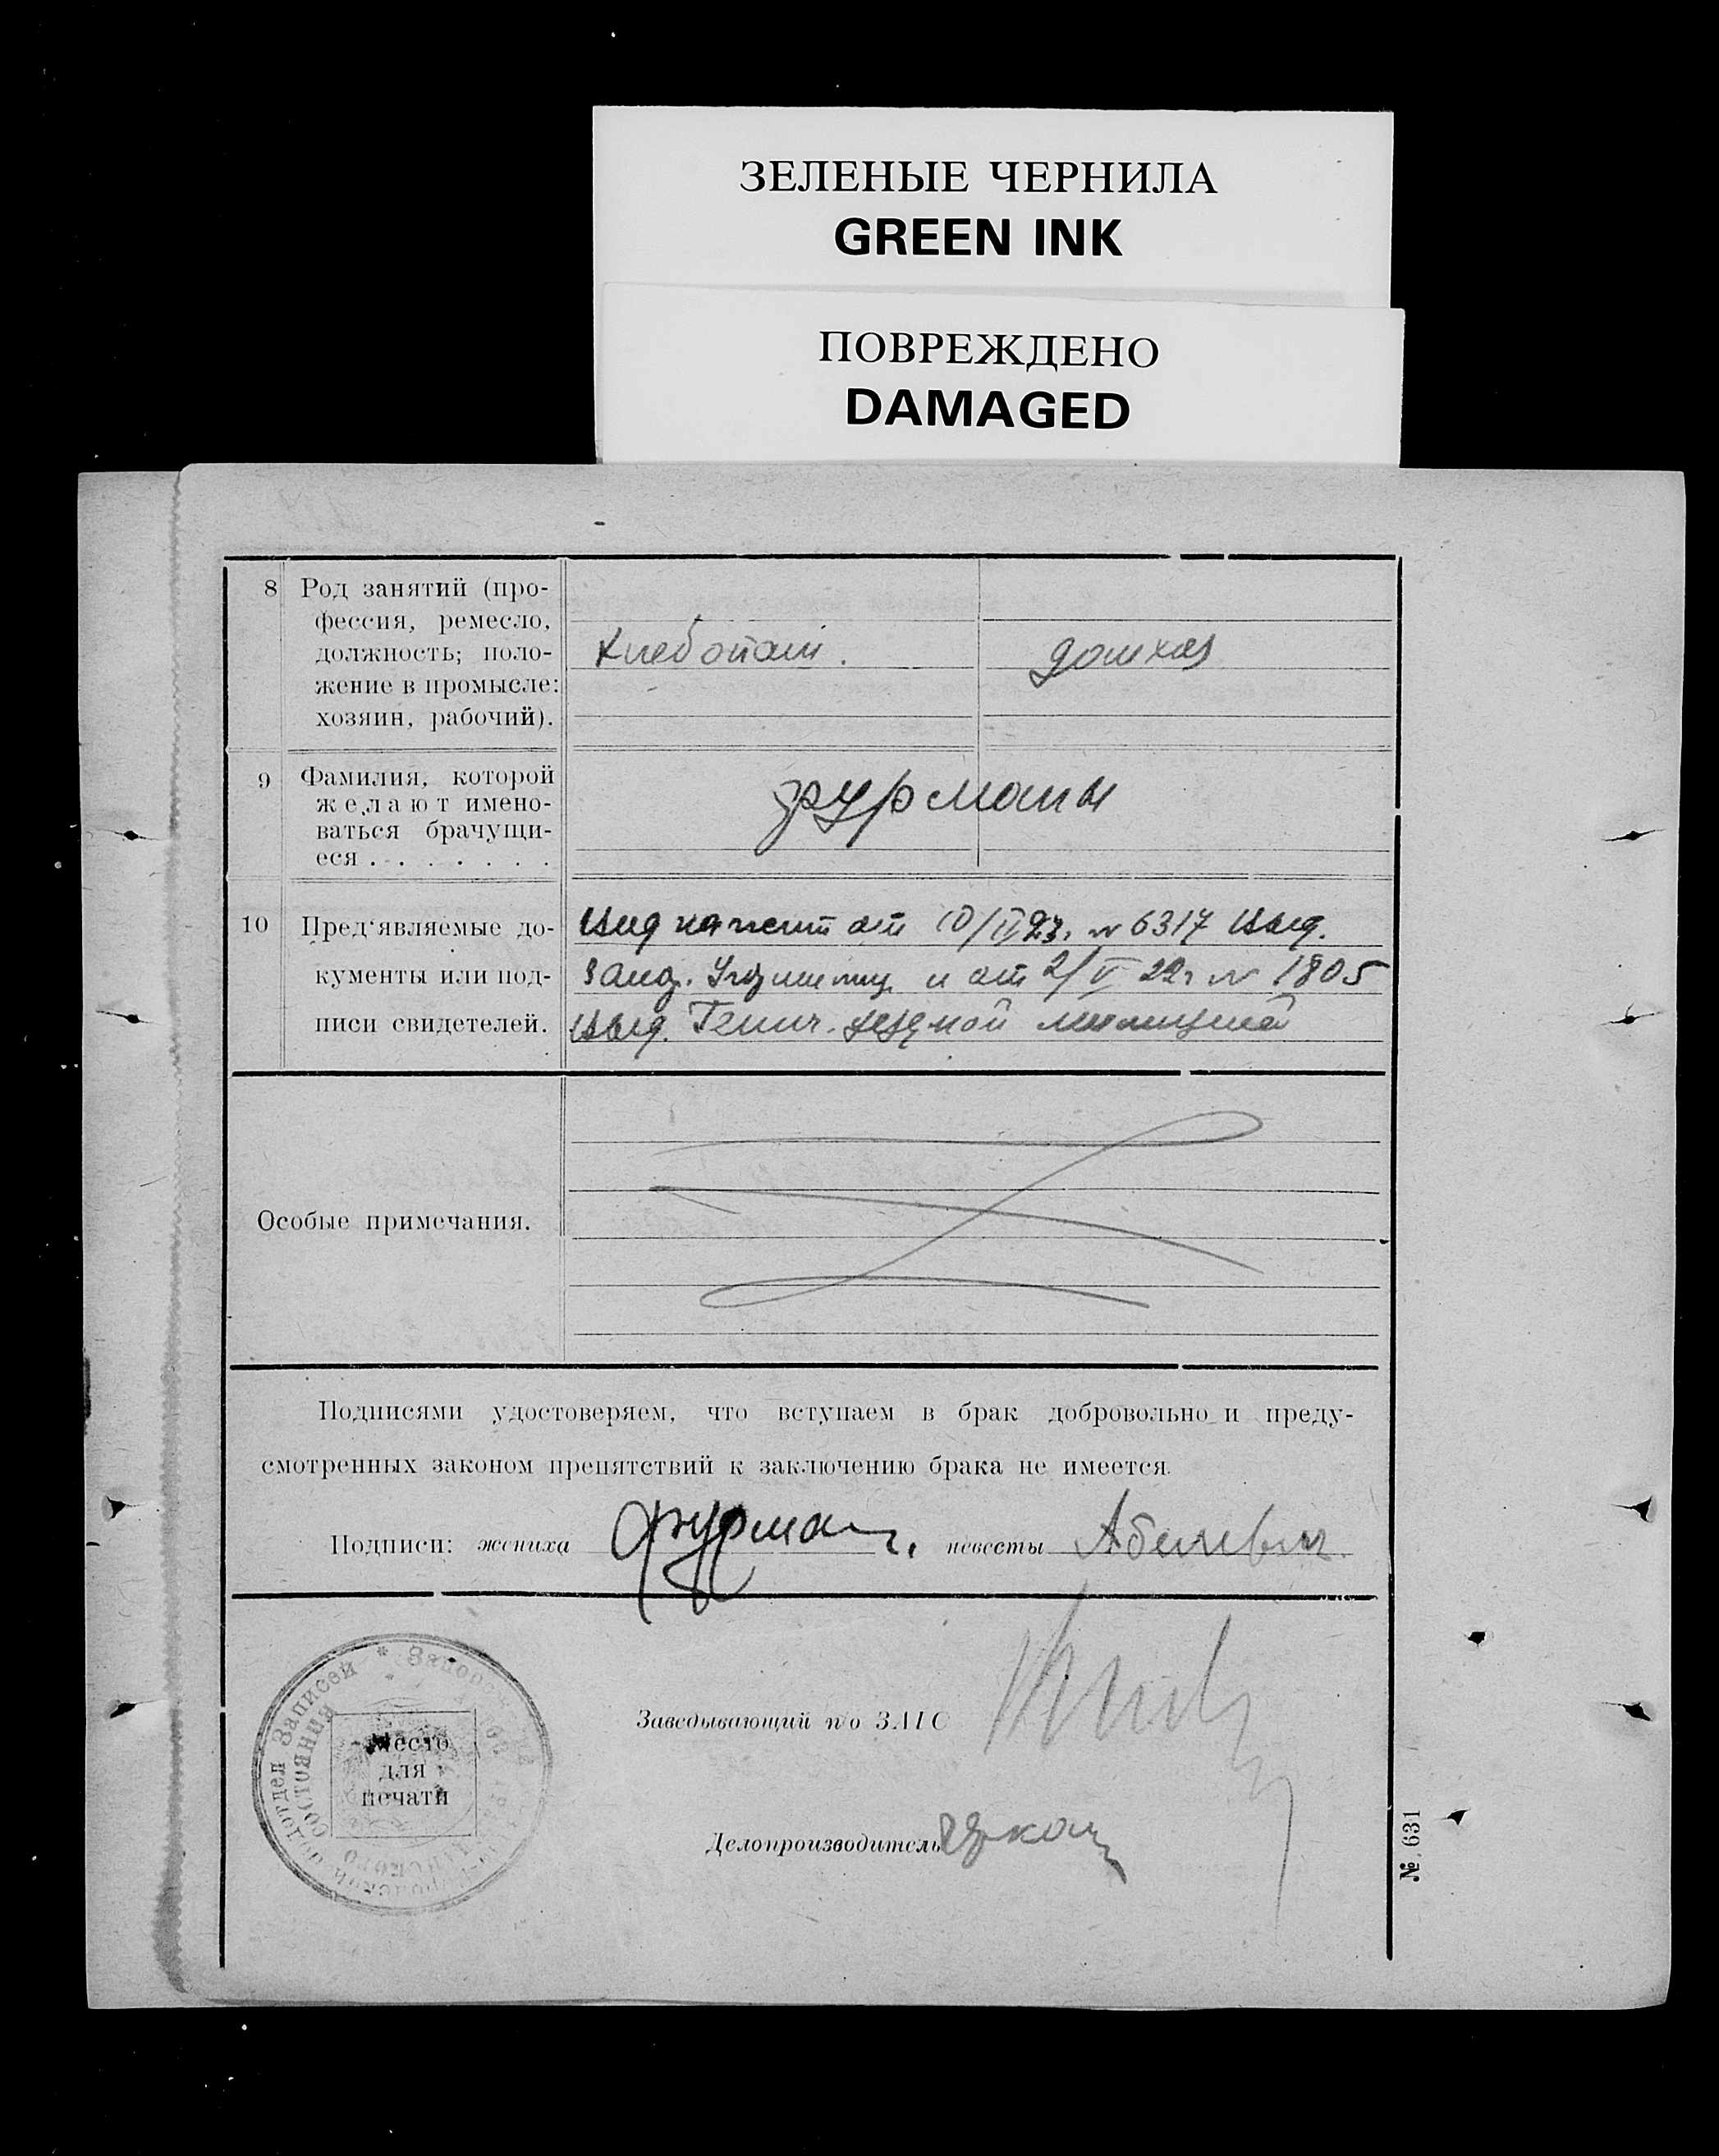 ЗЕЛЕНЫЕ ЧЕРНИЛА
GREEN INK
ПОВРЕЖДЕНО
DAMAGED
8 Род занятий (про-
фессия, ремесло,
должность; поло-
жение в промысле:
хозяин, рабочий).
хлебопаш.
домхоз
9 Фамилия, которой
желают имено-
ваться брачущи-
еся . . . . . . .
Фурманы
10 Пред'являемые до-
кументы или под-
писи свидетелей.
Вид на жит от 10/II 23. № 6317 выд.
и от 2/V 22г № 1805
выд. Генич. уездной милицией
Особые примечания.
Подписями удостоверяем, что вступаем в брак добровольно и преду-
смотренных законом препятствий к заключению брака не имеется.
Подписи: жениха Фурман, невесты
Отдел Записей * Запорож
состояния
Место
для
печати
Заведывающий п/о ЗАГС
Делопроизводитель
№ 631